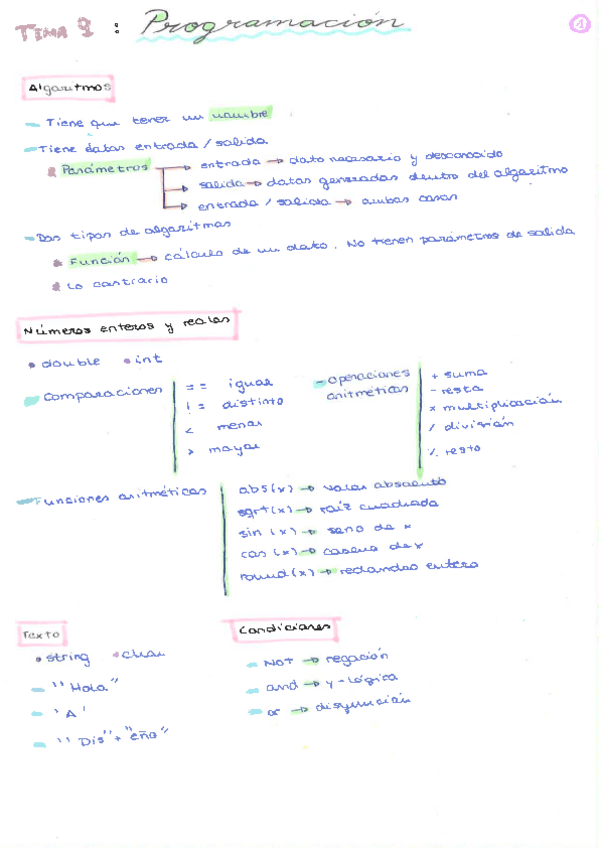 Tema 9 : Programación
1
Algoritmos
- Tiene que tener un nombre
- Tiene datos entrada / salida
Parámetros → entrada → dato necesario y desconocido
→ salida → datos generados dentro del algoritmo
→ entrada / salida → ambas cosas
- Dos tipos de algoritmos
Función → cálculo de un dato. No tienen parámetros de salida
Lo contrario
Números enteros y reales
• double • int
- Comparaciones
== igual
!= distinto
< menor
> mayor
- Operaciones aritméticas
+ suma
- resta
x multiplicación
/ división
% resto
- Funciones aritméticas
abs(x) → valor absoluto
sqrt(x) → raíz cuadrada
sin(x) → seno de x
cos(x) → coseno de x
round(x) → redondeo entero
Texto
• string • char
- "Hola"
- 'A'
- "Dis" + "eño"
Condiciones
- NOT → negación
- and → y-lógica
- or → disyunción